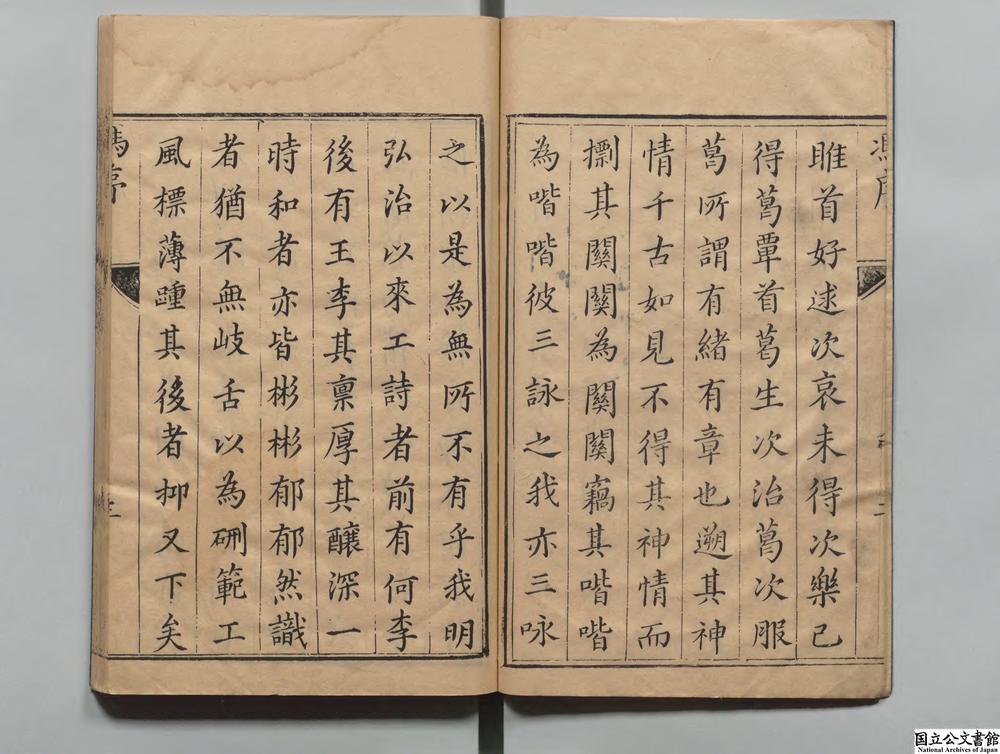 馮序
二
雎首好逑次哀未得次樂已
得葛覃首葛生次治葛次服
葛所謂有緒有章也遡其神
情千古如見不得其神情而
摽其關關為關關竊其喈喈
為喈喈彼三詠之我亦三咏
之以是為無所不有乎我明
弘治以來工詩者前有何李
後有王李其稟厚其釀深一
時和者亦皆彬彬郁郁然識
者猶不無岐舌以為硎範工
風標薄踵其後者抑又下矣
馮序
三
国立公文書館
National Archives of Japan